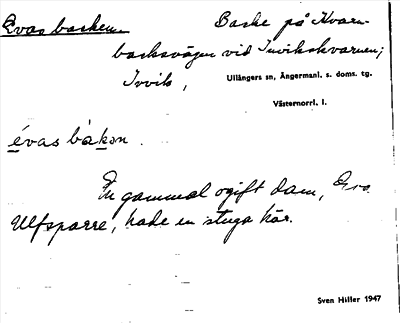 Evas backen
Backe på Kvarn-
backsvägen vid Invikskvarnen;
Invik,
Ullångers sn, Ångermanl. s. doms. tg.
Västernorrl. l.
évas bàkən.
En gammal ogift dam, Eva
Ulfsparre, hade en stuga här.
Sven Hiller 1947